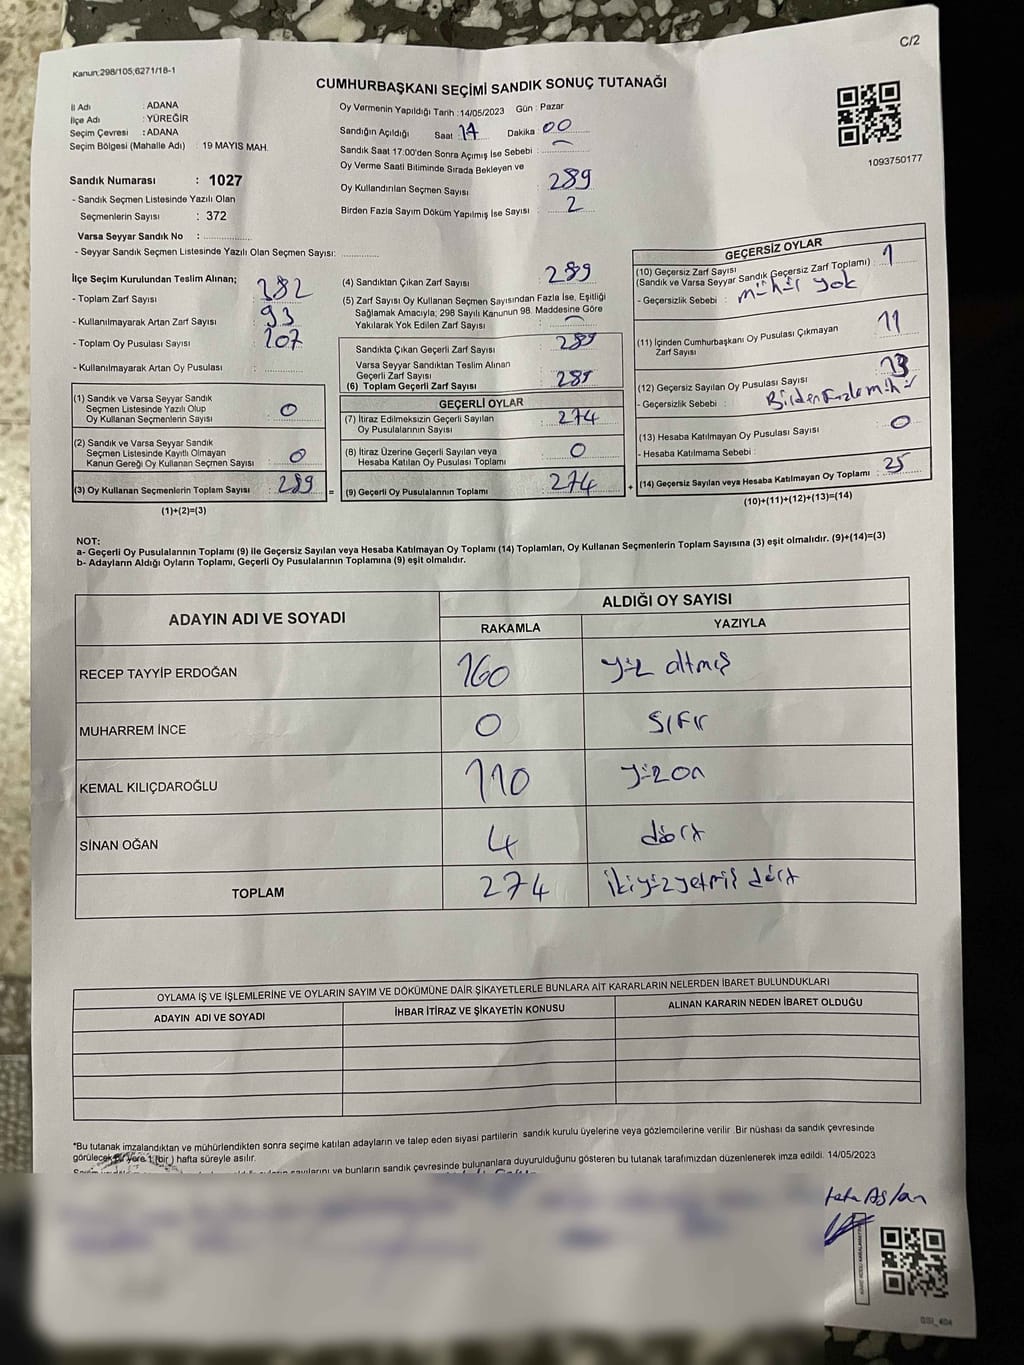 C/2
Kanun:298/105;6271/18-1
CUMHURBAŞKANI SEÇİMİ SANDIK SONUÇ TUTANAĞI
İl Adı : ADANA
İlçe Adı : YÜREĞİR
Seçim Çevresi : ADANA
Seçim Bölgesi (Mahalle Adı) : 19 MAYIS MAH.
Sandık Numarası : 1027
- Sandık Seçmen Listesinde Yazılı Olan
Seçmenlerin Sayısı : 372
Varsa Seyyar Sandık No :
- Seyyar Sandık Seçmen Listesinde Yazılı Olan Seçmen Sayısı:
Oy Vermenin Yapıldığı Tarih :14/05/2023 Gün : Pazar
Sandığın Açıldığı Saat 14 Dakika 00
Sandık Saat 17:00'den Sonra Açımış İse Sebebi :
Oy Verme Saati Bitiminde Sırada Bekleyen ve
Oy Kullandırılan Seçmen Sayısı : 289
Birden Fazla Sayım Döküm Yapılmış İse Sayısı : 2
1093750177
İlçe Seçim Kurulundan Teslim Alınan;
- Toplam Zarf Sayısı : 282
- Kullanılmayarak Artan Zarf Sayısı : 93
- Toplam Oy Pusulası Sayısı : 107
- Kullanılmayarak Artan Oy Pusulası :
(1) Sandık ve Varsa Seyyar Sandık
Seçmen Listesinde Yazılı Olup
Oy Kullanan Seçmenlerin Sayısı : 0
(2) Sandık ve Varsa Seyyar Sandık
Seçmen Listesinde Kayıtlı Olmayan
Kanun Gereği Oy Kullanan Seçmen Sayısı : 0
(3) Oy Kullanan Seçmenlerin Toplam Sayısı : 289 =
(1)+(2)=(3)
(4) Sandıktan Çıkan Zarf Sayısı : 289
(5) Zarf Sayısı Oy Kullanan Seçmen Sayısından Fazla İse, Eşitliği
Sağlamak Amacıyla; 298 Sayılı Kanunun 98. Maddesine Göre
Yakılarak Yok Edilen Zarf Sayısı :
Sandıkta Çıkan Geçerli Zarf Sayısı : 289
Varsa Seyyar Sandıktan Teslim Alınan
Geçerli Zarf Sayısı
(6) Toplam Geçerli Zarf Sayısı : 289
GEÇERLİ OYLAR
(7) İtiraz Edilmeksizin Geçerli Sayılan
Oy Pusulalarının Sayısı : 274
(8) İtiraz Üzerine Geçerli Sayılan ve
Hesaba Katılan Oy Pusulası Toplamı : 0
(9) Geçerli Oy Pusulalarının Toplamı : 274 +
GEÇERSİZ OYLAR
(10) Geçersiz Zarf Sayısı
(Sandık ve Varsa Seyyar Sandık Geçersiz Zarf Toplamı) : 1
- Geçersizlik Sebebi : mühür yok
(11) İçinden Cumhurbaşkanı Oy Pusulası Çıkmayan
Zarf Sayısı : 11
(12) Geçersiz Sayılan Oy Pusulası Sayısı : 13
- Geçersizlik Sebebi : Birden fazla mühür
(13) Hesaba Katılmayan Oy Pusulası Sayısı : 0
- Hesaba Katılmama Sebebi :
(14) Geçersiz Sayılan veya Hesaba Katılmayan Oy Toplamı : 25
(10)+(11)+(12)+(13)=(14)
NOT:
a- Geçerli Oy Pusulalarının Toplamı (9) ile Geçersiz Sayılan veya Hesaba Katılmayan Oy Toplamı (14) Toplamları, Oy Kullanan Seçmenlerin Toplam Sayısına (3) eşit olmalıdır. (9)+(14)=(3)
b- Adayların Aldığı Oyların Toplamı, Geçerli Oy Pusulalarının Toplamına (9) eşit olmalıdır.
ADAYIN ADI VE SOYADI ALDIĞI OY SAYISI
RAKAMLA YAZIYLA
RECEP TAYYİP ERDOĞAN 160 yüz altmış
MUHARREM İNCE 0 SIFIR
KEMAL KILIÇDAROĞLU 110 yüzon
SİNAN OĞAN 4 dört
TOPLAM 274 ikiyüzyetmiş dört
OYLAMA İŞ VE İŞLEMLERİNE VE OYLARIN SAYIM VE DÖKÜMÜNE DAİR ŞİKAYETLERLE BUNLARA AİT KARARLARIN NELERDEN İBARET BULUNDUKLARI
ADAYIN ADI VE SOYADI İHBAR İTİRAZ VE ŞİKAYETİN KONUSU ALINAN KARARIN NEDEN İBARET OLDUĞU
*Bu tutanak imzalandıktan ve mühürlendikten sonra seçime katılan adayların ve talep eden siyasi partilerin sandık kurulu üyelerine veya gözlemcilerine verilir .Bir nüshası da sandık çevresinde
görülecek bir yere 1 (bir ) hafta süreyle asılır.
sayılarını ve bunların sandık çevresinde bulunanlara duyurulduğunu gösteren bu tutanak tarafımızdan düzenlenerek imza edildi. 14/05/2023
Aslan